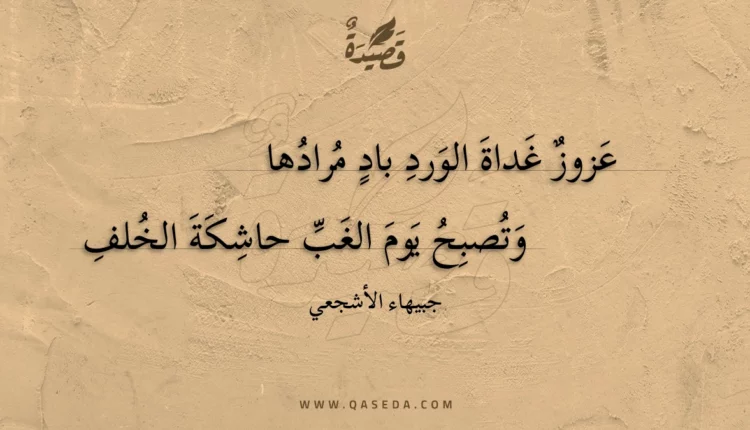 قَصِيدَةٌ
عَزوزٌ غَداةَ الوَردِ بادٍ مُرادُها
وَتُصبِحُ يَومَ الغَبِّ حاشِكَةَ الخُلفِ
جبيهاء الأشجعي
WWW.QASEDA.COM